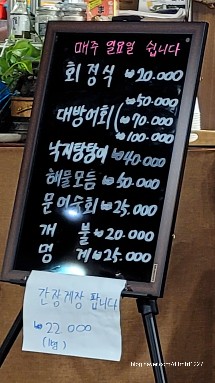 매주 일요일 쉽니다
회정식 ₩20.000
₩50.000
대방어회( ₩70.000
₩100.000
낙지탕탕이 ₩40.000
해물모듬 ₩50.000
문어숙회 ₩25.000
개 불 ₩20.000
멍 게 ₩25.000
간장게장 팝니다
₩22000
(1kg)